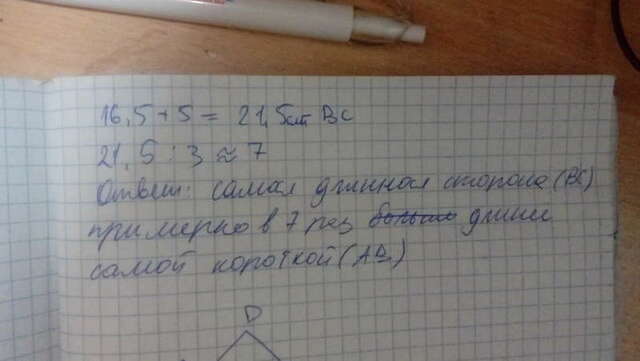 16,5+5=21,5см ВС
21,5:3≈7
Ответ: самая длинная сторона (ВС)
примерно в 7 раз больше длинее
самой короткой (АВ)
D